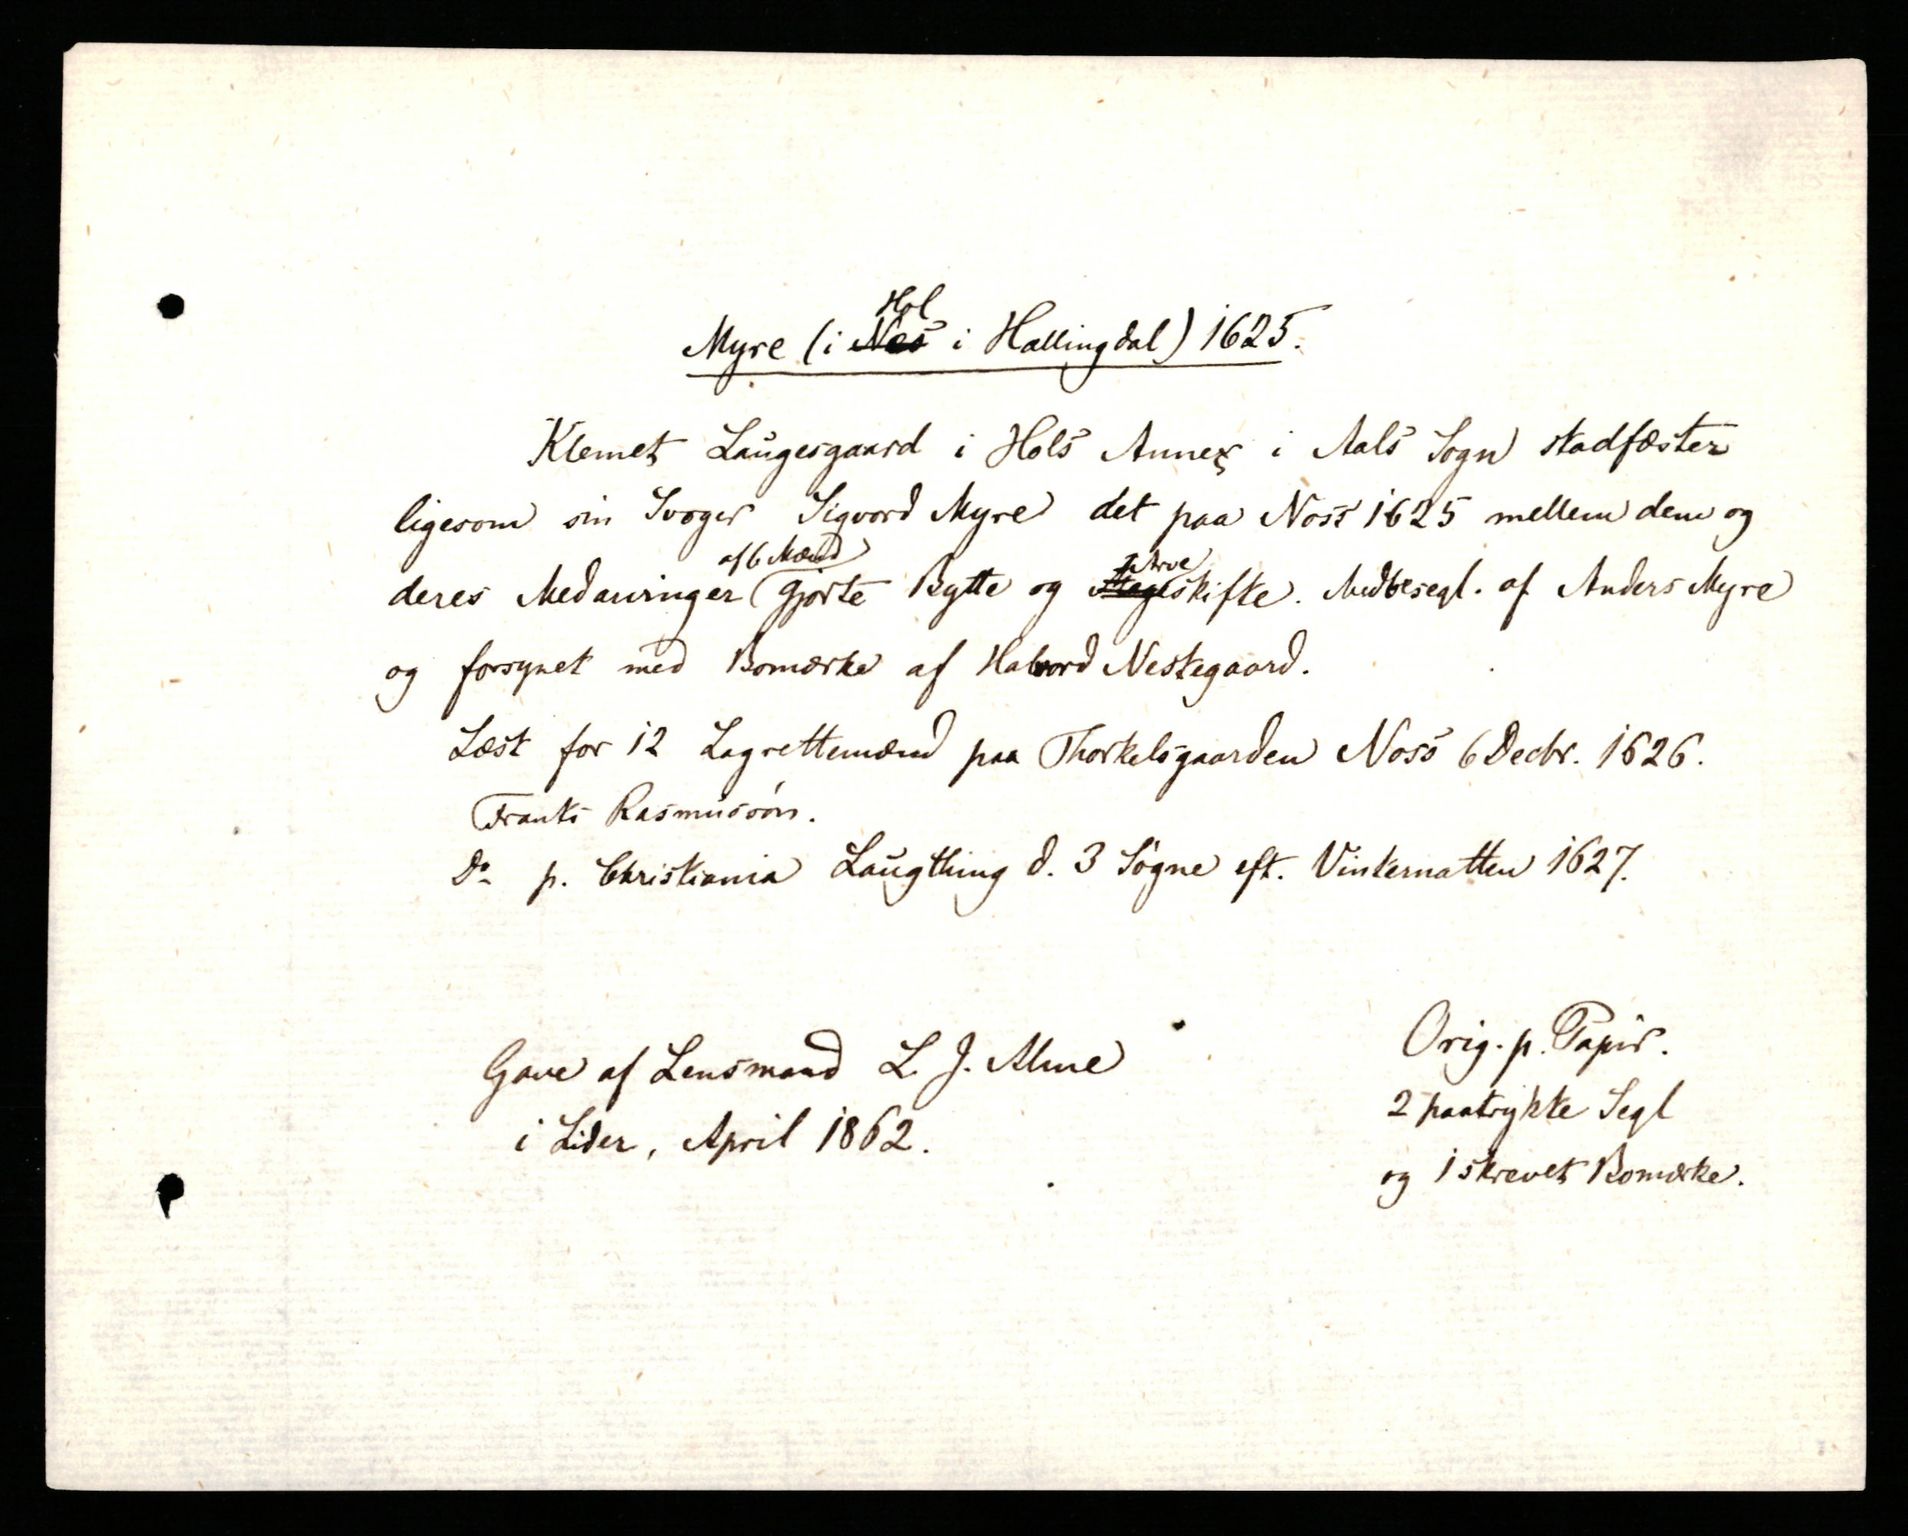 Hol
Myre (i Nes i Hallingdal) 1625.
Klemet Laugesgaard i Hols Annex i Aals Sogn stadfæster
ligesom sin Svoger Sigvord Myre det paa Noss 1625 mellem dem og
af 6 Mænd Arve
deres Medarvinger gjorte Bytte og skifte. Medbesegl. af Anders Myre
og forsynet med Bomærke af Halvord Nestegaard.
Læst for 12 Lagrettemænd paa Thorkelsgaarden Noss 6 Decbr. 1626.
Frants Rasmussön.
Do p. Christiania Laugthing d. 3 Søgne eft. Vinternatten 1627.
Gave af Lensmand L. J. Alme
i Lider, April 1862.
Orig. p. Papir.
2 paatrykte Segl
og 1 skrevet Bomærke.